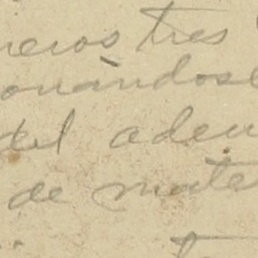 neros tres
onándose
del aden
de mate